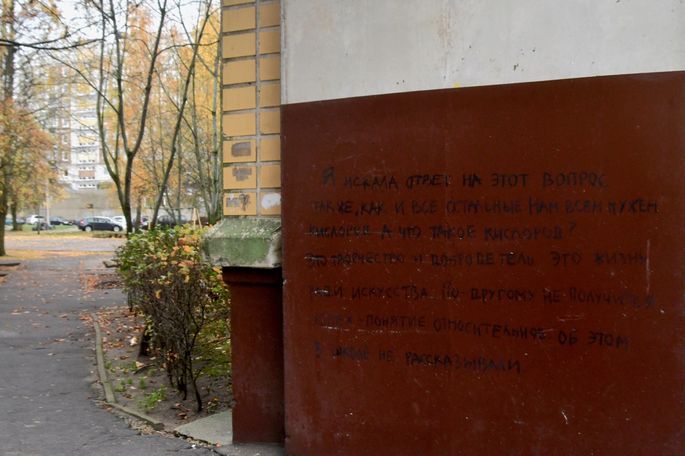 Я ИСКАЛА ОТВЕТ НА ЭТОТ ВОПРОС
ТАК ЖЕ, КАК И ВСЕ ОСТАЛЬНЫЕ НАМ ВСЕМ НУЖЕН
КИСЛОРОД А ЧТО ТАКОЕ КИСЛОРОД?
ЭТО ТВОРЧЕСТВО И ДОБРОДЕТЕЛЬ ЭТО ЖИЗНЬ
РАДИ ИСКУССТВА. ПО ДРУГОМУ НЕ ПОЛУЧИТЬСЯ
УСПЕХ - ПОНЯТИЕ ОТНОСИТЕЛЬНОЕ ОБ ЭТОМ
В ШКОЛЕ НЕ РАССКАЗЫВАЛИ